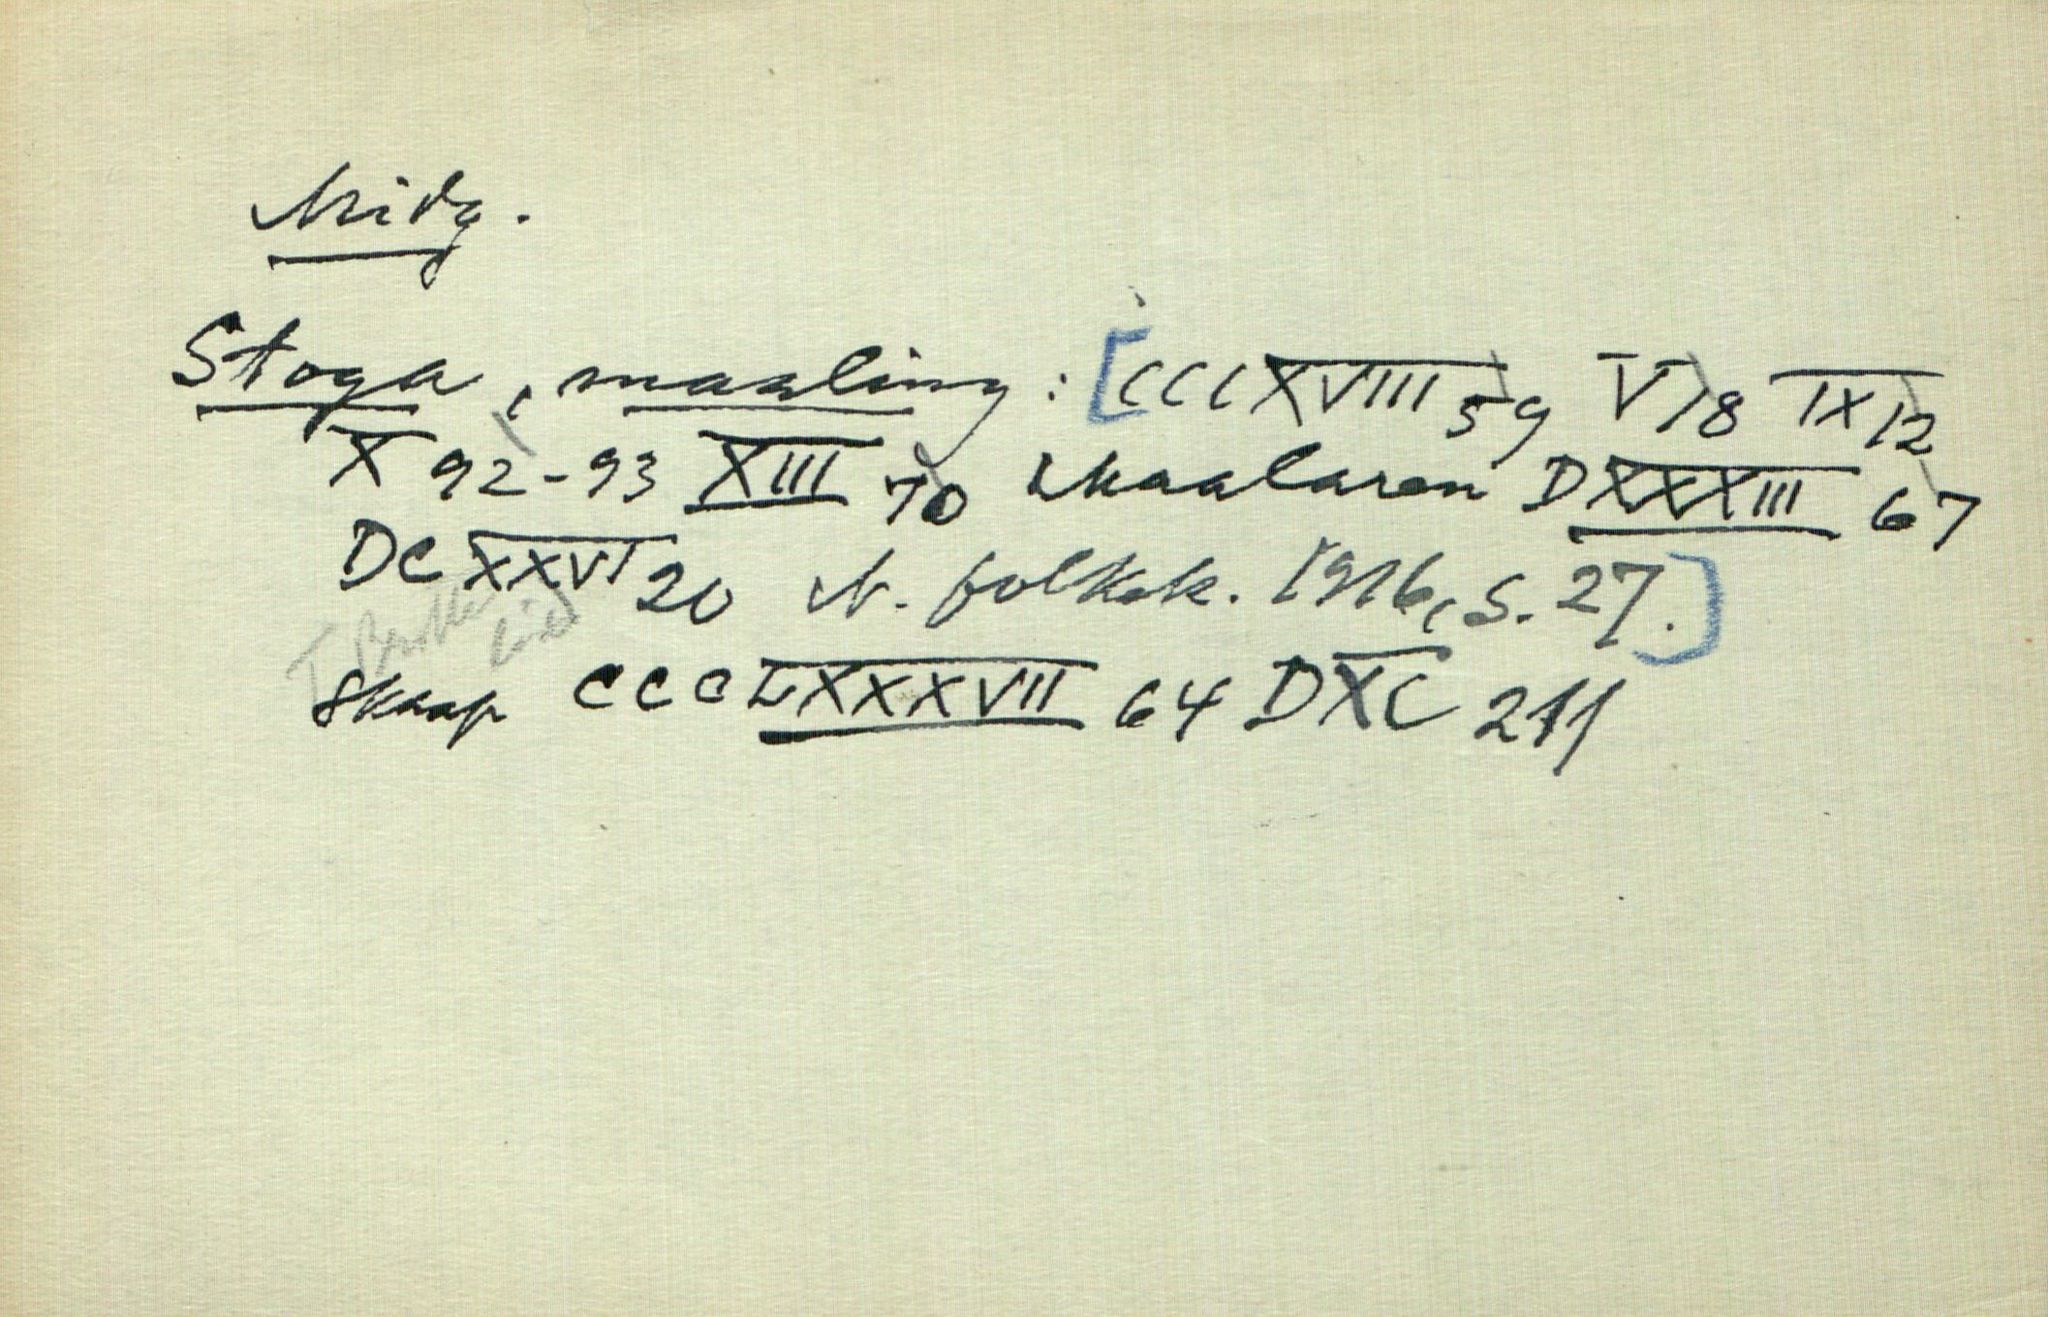 Nidg.
Stoga, maaling: [CCCXVIII 59 V 18 IX 12
X 92-93 XIII 70 Maalaren DXXXIII 67
DCXXVI 20 N. folkek. 1916, S. 27.]
T
Skaap CCCLXXXVII 64 DXC 211